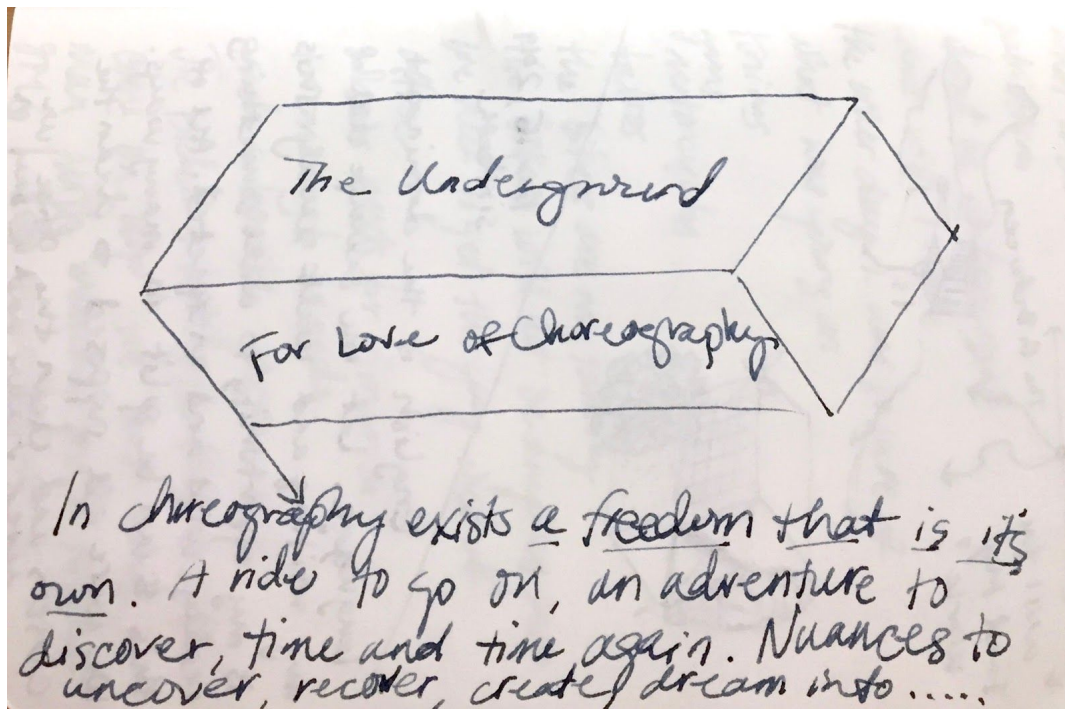 The Underground
For Love of Choreography
In choreography exists a freedom that is its
own. A ride to go on, an adventure to
discover, time and time again. Nuances to
uncover, recover, create, dream into.....